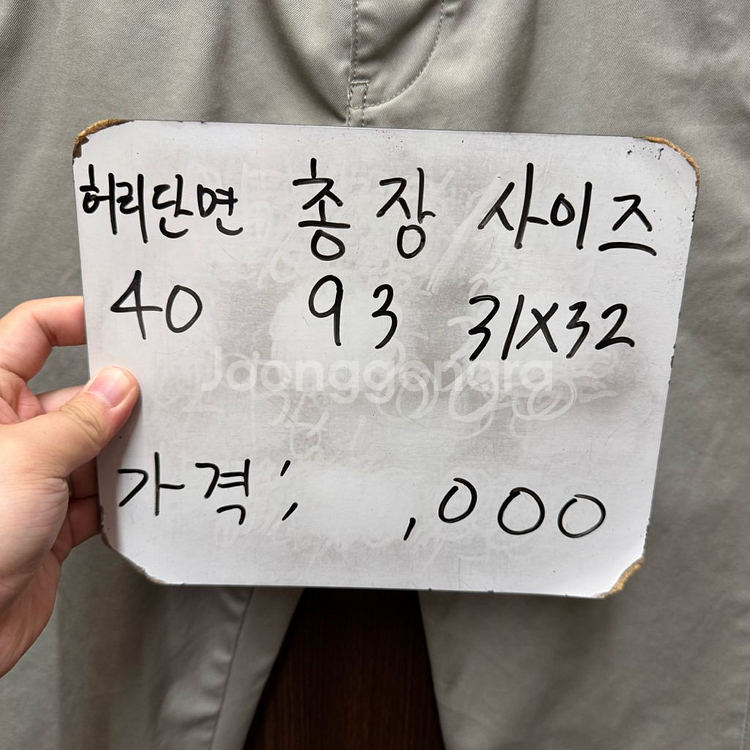 허리단면 총장 사이즈
40 93 31X32
Joonggonara
가격; ,000